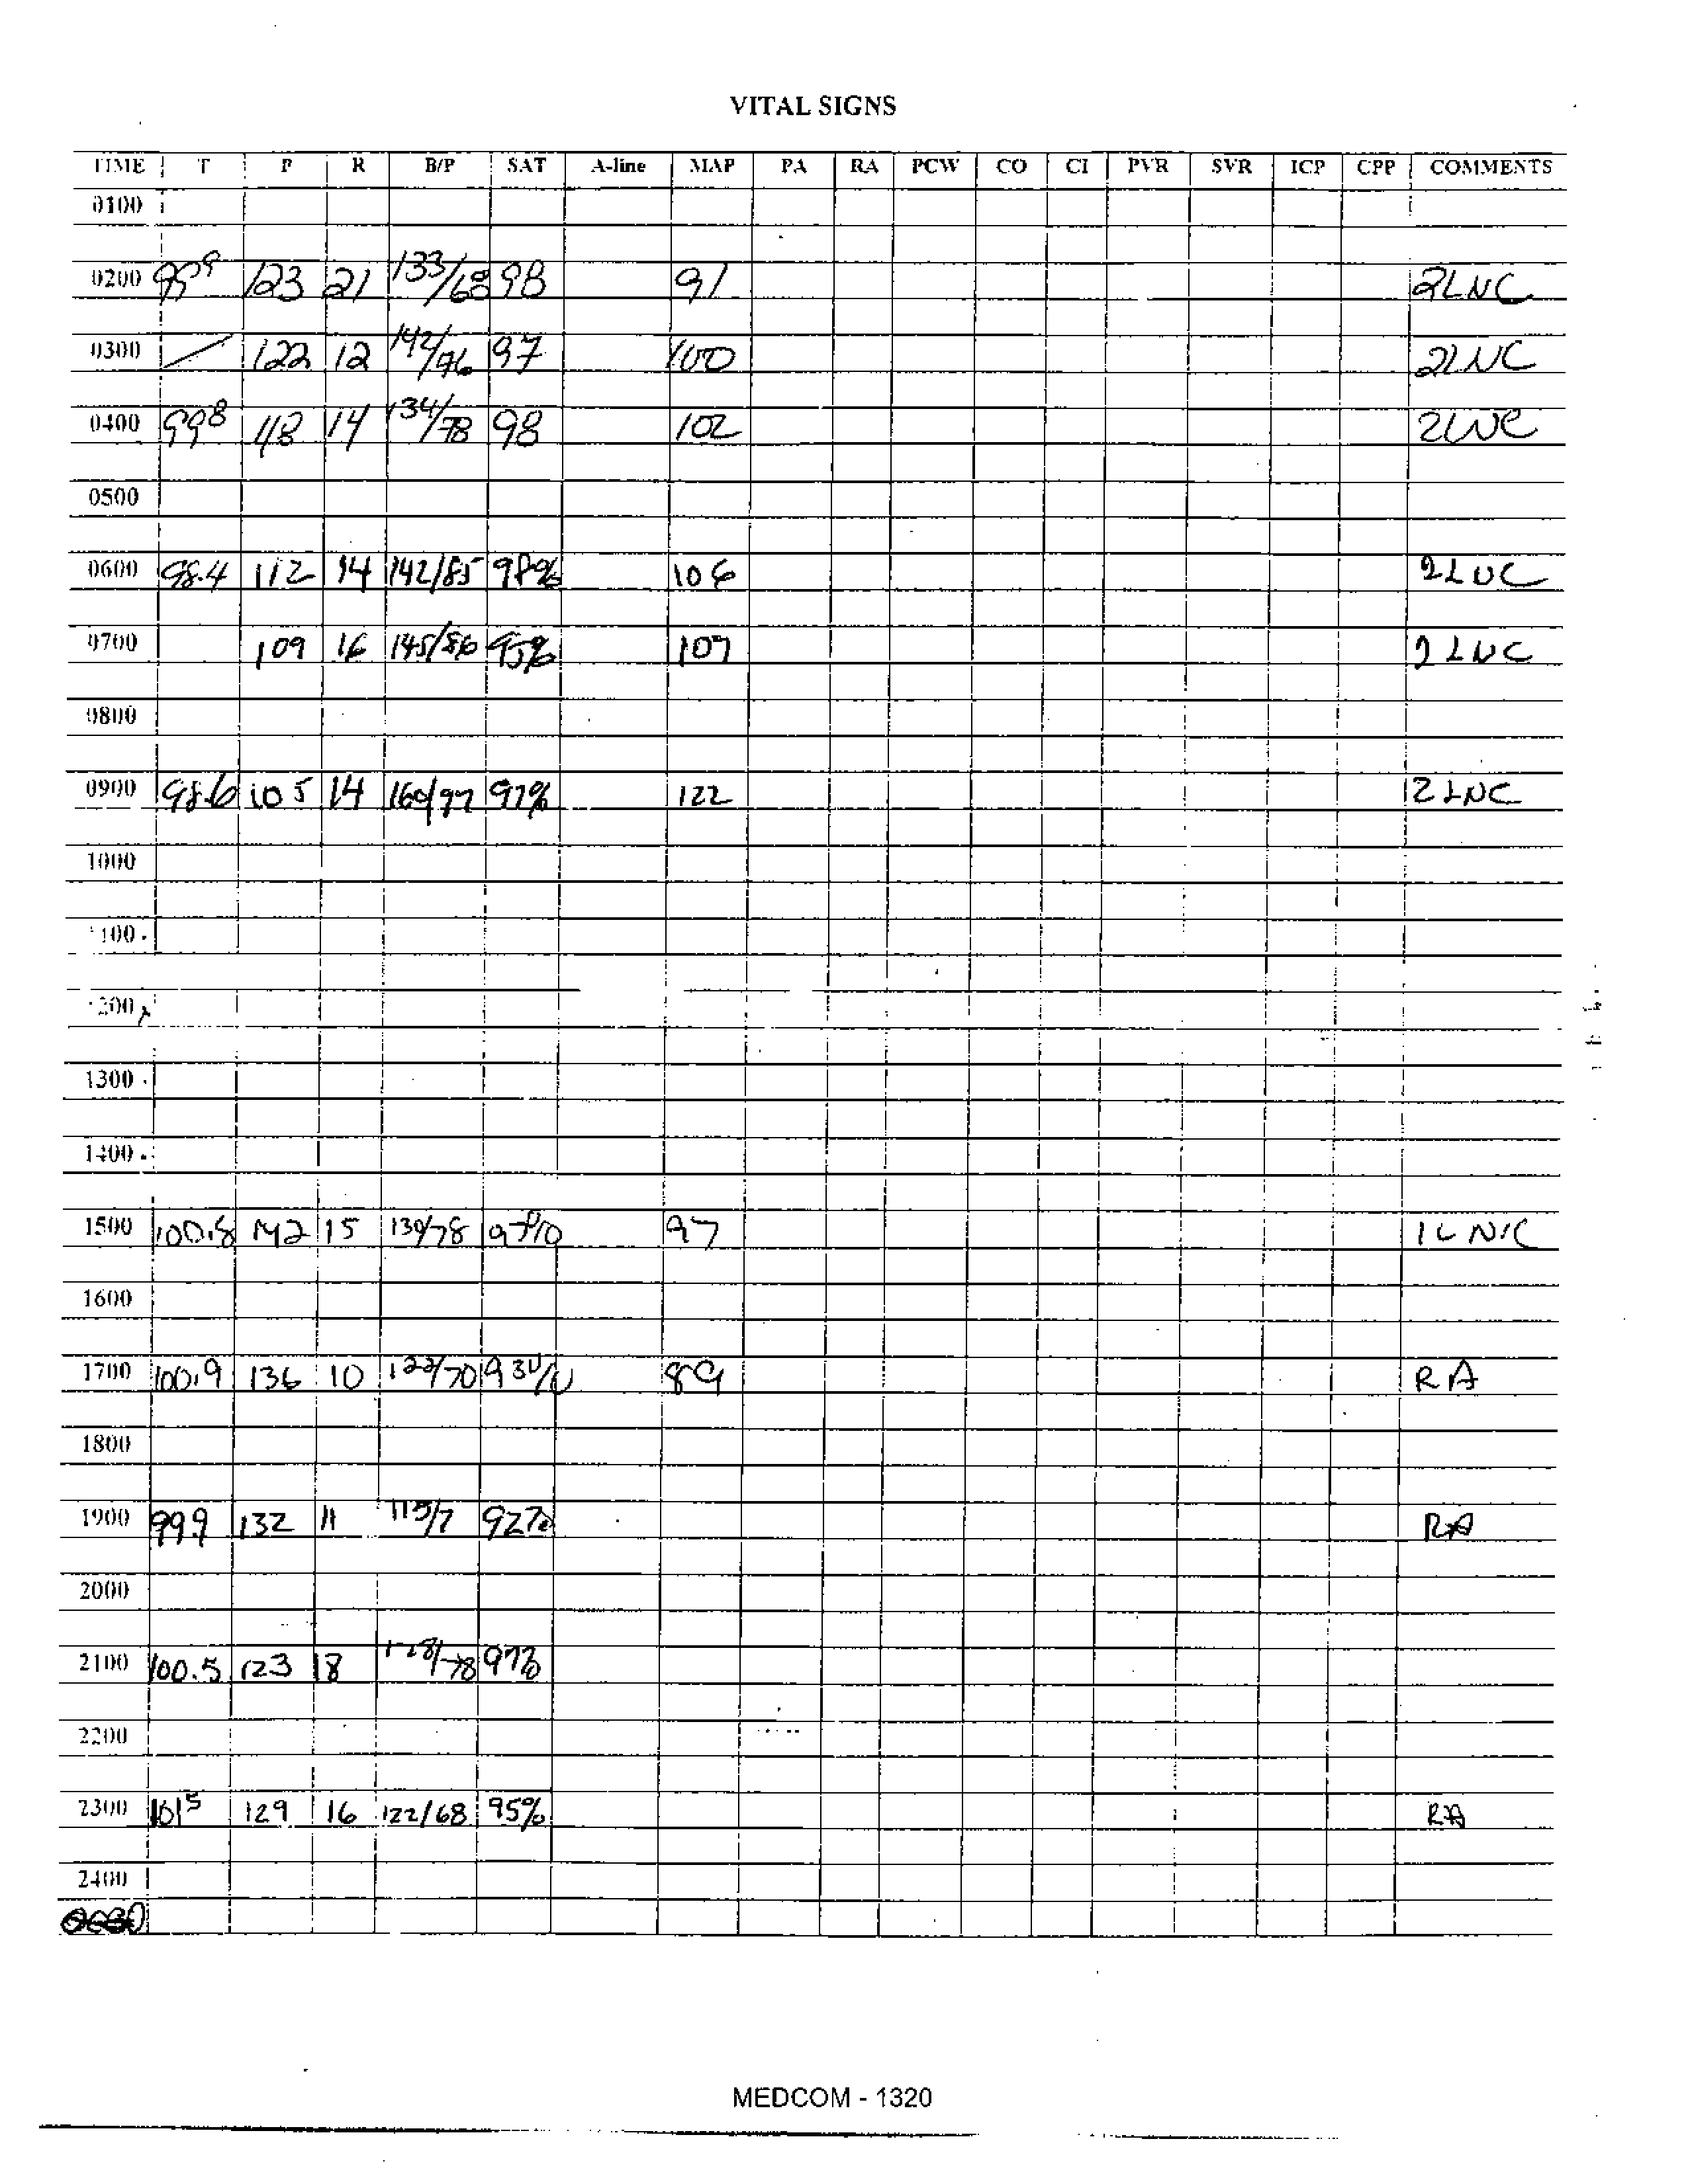 VITAL SIGNS
TIME T P R B/P SAT A-line MAP PA RA PCW CO CI PVR SVR ICP CPP COMMENTS
0100
0200 99⁹ 123 21 133/68 98 91 2LNC
0300 / 122 12 142/76 97 100 2LNC
0400 99⁸ 118 14 134/78 98 102 2LNC
0500
0600 98.4 112 14 142/85 98% 106 2LNC
0700 109 16 145/86 95% 107 2LNC
0800
0900 98.6 105 14 160/97 97% 122 2LNC
1000
100
200
1300
1400
1500 100.8 142 15 130/78 97% 97 1L N/C
1600
1700 100.9 136 10 122/70 93% 89 RA
1800
1900 99.9 132 11 115/7 92% RA
2000
2100 100.5 123 18 128/78 97%
2200
2300 101⁵ 129 16 122/68 95% RA
2400
MEDCOM - 1320